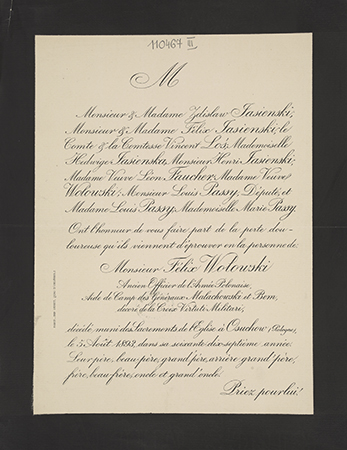 110467 III
M
Monsieur & Madame Zdislaw Jasienski;
Monsieur & Madame Félix Jasienski, le
Comte & la Comtesse Vincent Łoś, Mademoiselle
Hedwige Jasienska, Monsieur Henri Jasienski;
Madame Veuve Léon Faucher, Madame Veuve
Wolowski; Monsieur Louis Passy, Député, et
Madame Louis Passy, Mademoiselle Marie Passy.
Ont l'honneur de vous faire part de la perte dou-
loureuse qu'ils viennent d'éprouver en la personne de:
Monsieur Félix Wolowski
Ancien Officier de l'Armée Polonaise,
Aide de Camp des Généraux Malachowski et Bem,
décoré de la Croix Virtuti Militari,
décédé, muni des Sacrements de l'Eglise à Osuchow (Pologne),
le 5 Août 1892, dans sa soixante dix-septième année.
Leur père, beau-père, grand'père, arrière grand'père,
frère, beau-frère, oncle et grand'oncle.
Priez pour lui!